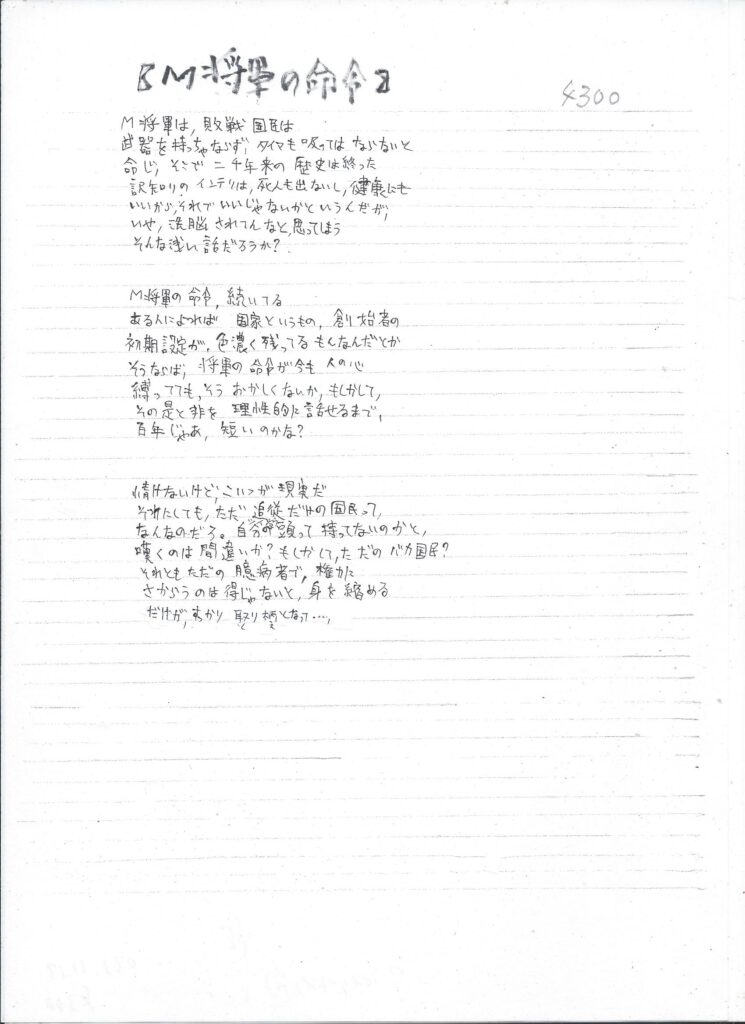 『M将軍の命令』
4300
M将軍は, 敗戦国民は
武器を持っちゃならず, タイマも吸ってはならないと
命じ, そこで二千年来の歴史は終った
訳知りのインテリは, 死人も出ないし, 健康にも
いいから, それでいいじゃないかというんだが,
いや, 洗脳されてんなと, 思ってしまう
そんな浅い話だろうか?
M将軍の命令, 続いてる
ある人によれば 国家というもの, 創始者の
初期設定が, 色濃く残ってるもんなんだとか
そうならば, 将軍の命令が今も 人の心
縛ってても, そうおかしくないか, もしかして,
その是と非を 理性的に話せるまで,
百年じゃあ, 短いのかな?
情けないけど, こいつが現実だ
それにしても, ただ追従だけの国民って,
なんなのだろ。自分の頭って持ってないのかと,
嘆くのは間違いか? もしかして, ただのバカ国民?
それともただの臆病者で, 権力に
さからうのは得じゃないと, 身を縮める
だけが, 取り柄となって…,